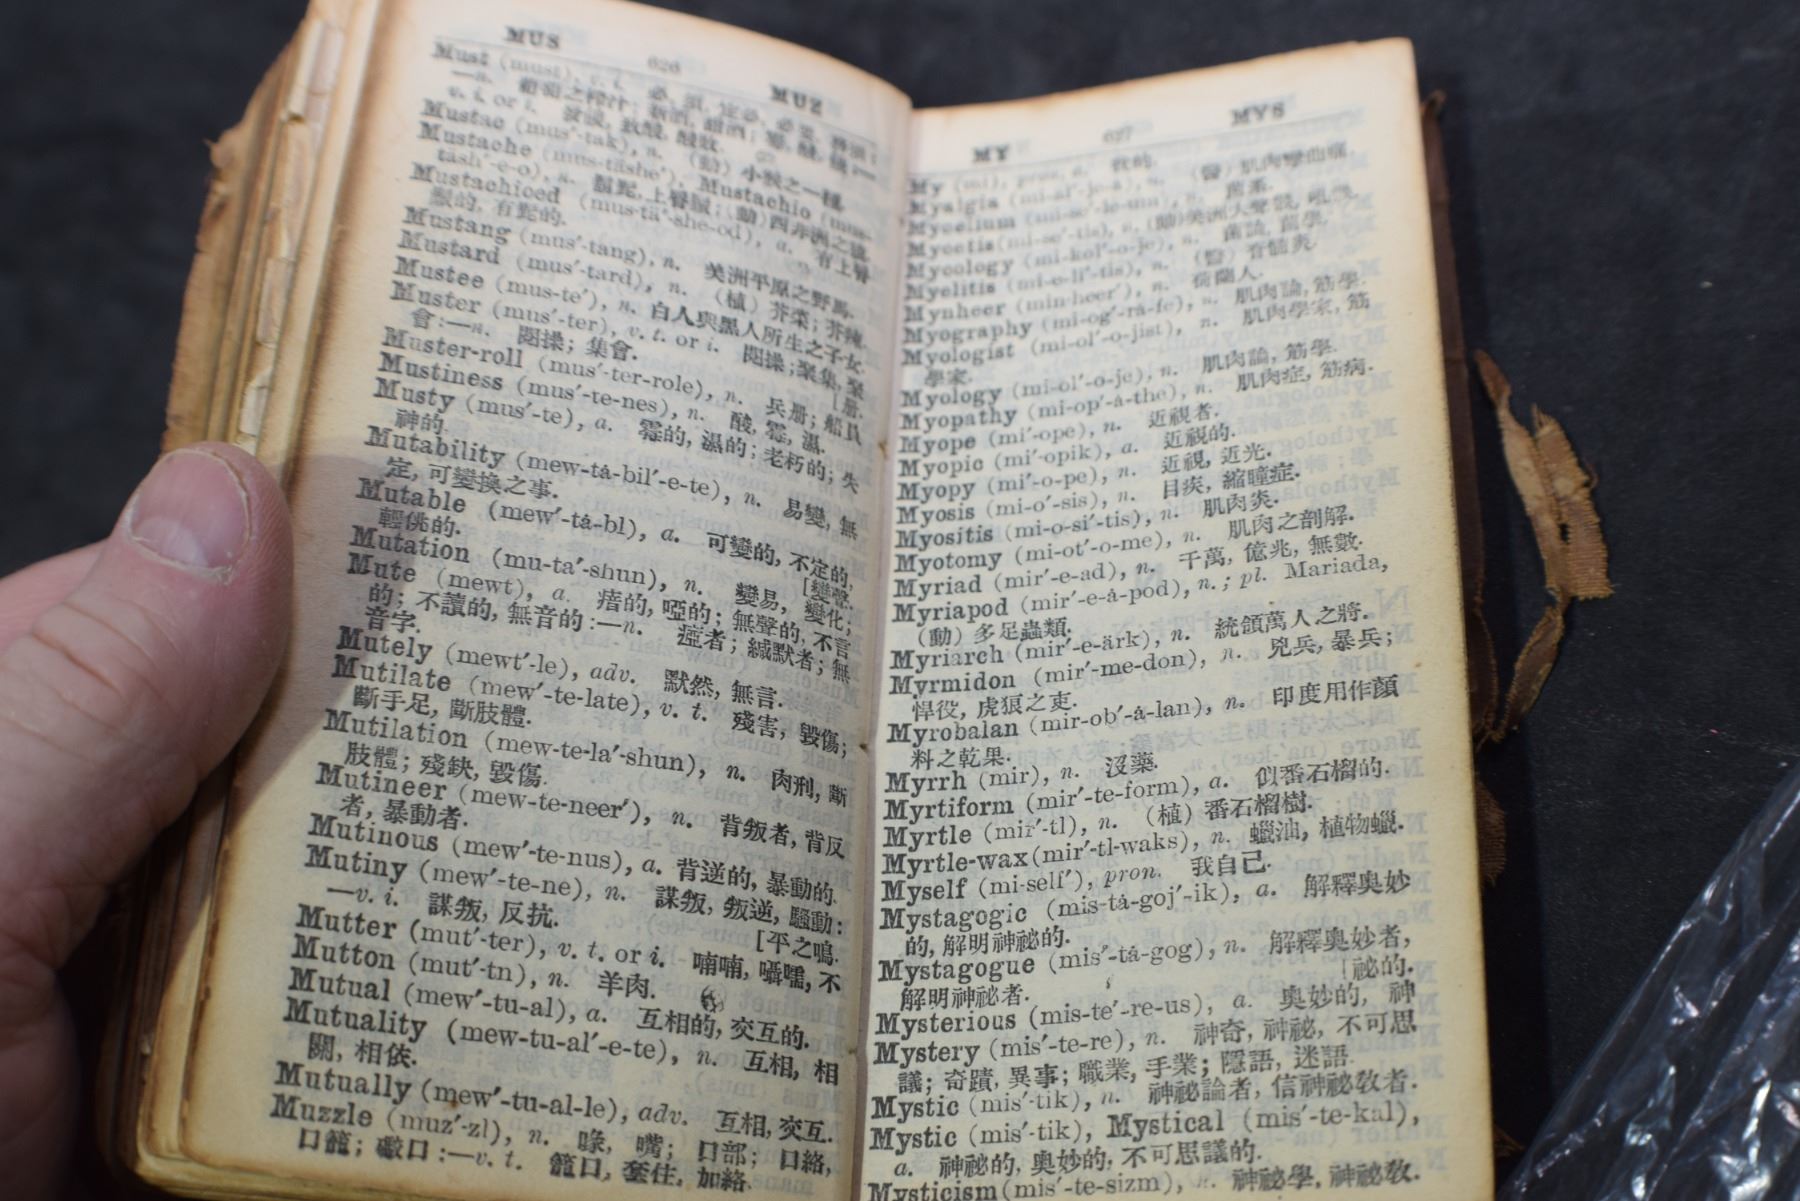 MUS 626 MUZ
Must (must), v. i. 必, 須, 定必, 必要, 務須;
—n. 葡萄之榨汁; 新酒, 甜酒;
v. t. or i. 發酸, 致酸, 酸敗.
Mustac (mus′-tak), n. (動) 小猴之一種.
Mustache (mus-täshe′), Mustachio (mus-
täsh′-e-o), n. 鬍髭, 上脣鬍; (動) 四非洲之猿.
Mustachioed (mus-tä′-she-od), a. 有上脣
鬍的, 有髭的.
Mustang (mus′-tang), n. 美洲平原之野馬.
Mustard (mus′-tard), n. (植) 芥菜; 芥辣.
Mustee (mus-te′), n. 白人與黑人所生之子女.
Muster (mus′-ter), v. t. or i. 閱操; 聚集, 聚
會:—n. 閱操; 集會. [册.
Muster-roll (mus′-ter-role), n. 兵册; 船員
Mustiness (mus′-te-nes), n. 酸, 霉, 濕.
Musty (mus′-te), a. 霉的, 濕的; 老朽的; 失
神的.
Mutability (mew-tá-bil′-e-te), n. 易變, 無
定, 可變換之事.
Mutable (mew′-tá-bl), a. 可變的, 不定的,
輕佻的. [變聲.
Mutation (mu-ta′-shun), n. 變易, 變化;
Mute (mewt), a. 瘖的, 啞的; 無聲的, 不言
的; 不讀的, 無音的:—n. 瘂者; 緘默者; 無
音字.
Mutely (mewt′-le), adv. 默然, 無言.
Mutilate (mew′-te-late), v. t. 殘害, 毀傷;
斷手足, 斷肢體.
Mutilation (mew-te-la′-shun), n. 肉刑, 斷
肢體; 殘缺, 毀傷.
Mutineer (mew-te-neer′), n. 背叛者, 背反
者, 暴動者.
Mutinous (mew′-te-nus), a. 背逆的, 暴動的.
Mutiny (mew′-te-ne), n. 謀叛, 叛逆, 騷動:
—v. i. 謀叛, 反抗. [平之鳴.
Mutter (mut′-ter), v. t. or i. 喃喃, 囁嚅, 不
Mutton (mut′-tn), n. 羊肉.
Mutual (mew′-tu-al), a. 互相的, 交互的.
Mutuality (mew-tu-al′-e-te), n. 互相, 相
關, 相依.
Mutually (mew′-tu-al-le), adv. 互相, 交互.
Muzzle (muz′-zl), n. 喙, 嘴; 口部; 口絡,
口籠; 礮口:—v. t. 籠口, 套住, 加絡.
MY 627 MYS
My (mi), pron. a. 我的.
Myalgia (mi-al′-je-á), n. (醫) 肌肉彎曲痛.
Mycelium (mi-se′-le-um), n. 菌系.
Mycetis (mi-se′-tis), n. (動) 美洲大聲猿, 吼猿.
Mycology (mi-kol′-o-je), n. 菌論, 菌學.
Myelitis (mi-e-li′-tis), n. (醫) 脊髓炎.
Mynheer (min-heer′), n. 荷蘭人.
Myography (mi-og′-rá-fe), n. 肌肉論, 筋學.
Myologist (mi-ol′-o-jist), n. 肌肉學家, 筋
學家.
Myology (mi-ol′-o-je), n. 肌肉論, 筋學.
Myopathy (mi-op′-á-the), n. 肌肉症, 筋病.
Myope (mi′-ope), n. 近視者.
Myopic (mi′-opik), a. 近視的.
Myopy (mi′-o-pe), n. 近視, 近光.
Myosis (mi-o′-sis), n. 目疾, 縮瞳症.
Myositis (mi-o-si′-tis), n. 肌肉炎.
Myotomy (mi-ot′-o-me), n. 肌肉之剖解.
Myriad (mir′-e-ad), n. 千萬, 億兆, 無數.
Myriapod (mir′-e-á-pod), n.; pl. Mariada,
(動) 多足蟲類.
Myriarch (mir′-e-ärk), n. 統領萬人之將.
Myrmidon (mir′-me-don), n. 兇兵, 暴兵;
悍役, 虎狼之吏.
Myrobalan (mir-ob′-á-lan), n. 印度用作顏
料之乾果.
Myrrh (mir), n. 沒藥.
Myrtiform (mir′-te-form), a. 似番石榴的.
Myrtle (mir′-tl), n. (植) 番石榴樹.
Myrtle-wax (mir′-tl-waks), n. 蠟油, 植物蠟.
Myself (mi-self′), pron. 我自己.
Mystagogic (mis-tá-goj′-ik), a. 解釋奥妙
的, 解明神祕的.
Mystagogue (mis′-tá-gog), n. 解釋奥妙者,
解明神祕者. [祕的.
Mysterious (mis-te′-re-us), a. 奥妙的, 神
Mystery (mis′-te-re), n. 神奇, 神祕, 不可思
議; 奇蹟, 異事; 職業, 手業; 隱語, 迷語.
Mystic (mis′-tik), n. 神祕論者, 信神祕敎者.
Mystic (mis′-tik), Mystical (mis′-te-kal),
a. 神祕的, 奥妙的, 不可思議的.
Mysticism (mis′-te-sizm), n. 神祕學, 神祕敎.